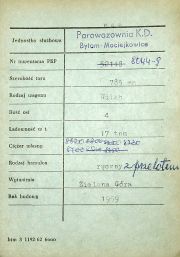 Jednostka służbowa
Parowozownia K.D.
Bytom-Maciejkowice
Nr inwentarza PKP 8044-8
Szerokość toru 785 mm
Rodzaj wagonu
Ilość osi 4
Ładowność w t 17 ton
Ciężar własny
Rodzaj hamulca ręczny z przelotem
Wytwórnia Zielona Góra
Rok budowy 1959